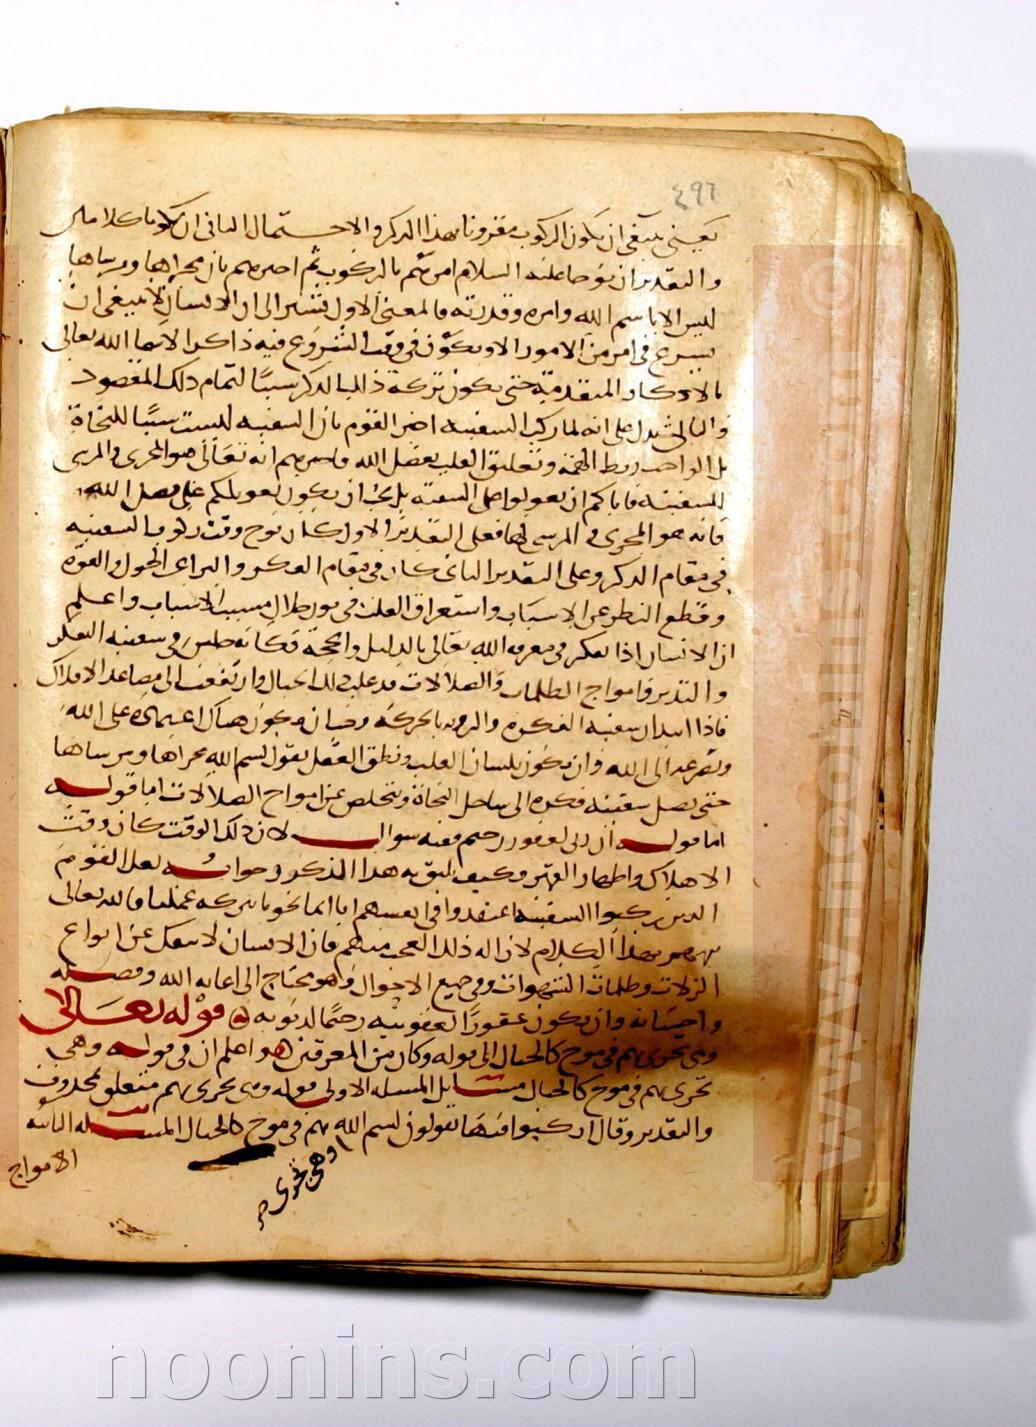 ٤٩٦
يعني ينبغي ان يكون الركوب مقرونا بهذا الذكر والاحتمال الثاني ان يكونا كلامين
والتقدير ان نوحا عليه السلام امرهم بالركوب ثم اخبرهم بان مجراها ومرساها
ليس الا باسم الله وامره وقدرته فالمعنى الاول يشير الى ان الانسان لا ينبغي ان
يشرع في امر من الامور الا ويكون في وقت الشروع فيه ذاكرا لاسم الله تعالى
بالاذكار المتقدمة حتى يكون بركة ذلك الذكر سببًا لتمام ذلك المقصود
والثاني يدل على انه لما ركب السفينه اخبر القوم بان السفينه ليست سببًا للنجاة
بل الواجب ربط الهمة وتعليق القلب بفضل الله واخبرهم انه تعالى هو المجري والمرسي
للسفينه فاياكم ان تعولوا على السفينه بل يجب ان يكون تعويلكم على فضل الله
فانه هو المجري والمرسي لها فعلى التقدير الاول كان نوح وقت ركوب السفينه
في مقام الذكر وعلى التقدير الثاني كان في مقام الفكر والبراءة عن الحول والقوة
وقطع النظر عن الاسباب واستغراق القلب في نور جلال مسبب الاسباب واعلم
ان الانسان اذا تفكر في معرفة الله تعالى بالدليل والحجة فكانه جلس في سفينه التفكر
والتدبر وامواج الظلمات والضلالات قد علت تلك الجبال وارتفعت الى مصاعد الافلاك
فاذا ابتدات سفينه الفكره والرويه بالحركة وجب ان يكون هناك اعتماده على الله
وتضرعه الى الله وان يكون بلسان القلب ونطق العقل يقول بسم الله مجراها ومرساها
حتى تصل سفينه فكره الى ساحل النجاة وتتخلص عن امواج الضلالات اما قوله
اما قوله ان ربي لغفور رحيم ففيه سوال لان ذلك الوقت كان وقت
الاهلاك واظهار القهر وكيف يليق به هذا الذكر وجوابه لعل القوم
الذين ركبوا السفينه اعتقدوا في انفسهم انا انما نجونا ببركه عملنا فالله تعالى
بهذا الكلام لازاله ذلك العجب منهم فان الانسان لا ينفك عن انواع
الزلات وظلمات الشهوات وفي جميع الاحوال فهو محتاج الى اعانه الله وفضله
واحسانه وان يكون غفورًا لعقوبته رحيمًا لذنوبه قوله تعالى
وهي تجري بهم في موج كالجبال الى قوله وكان من المغرقين هو اعلم ان في قوله وهي
تجري بهم في موج كالجبال مسايل المسله الاولى قوله وهي تجري بهم متعلق بمحذوف
والتقدير وقال اركبوا فيها يقولون بسم الله بهم في موج كالجبال المسله الثانيه
وهي تجري صح
الامواج
noonins.com
www.noonins.com